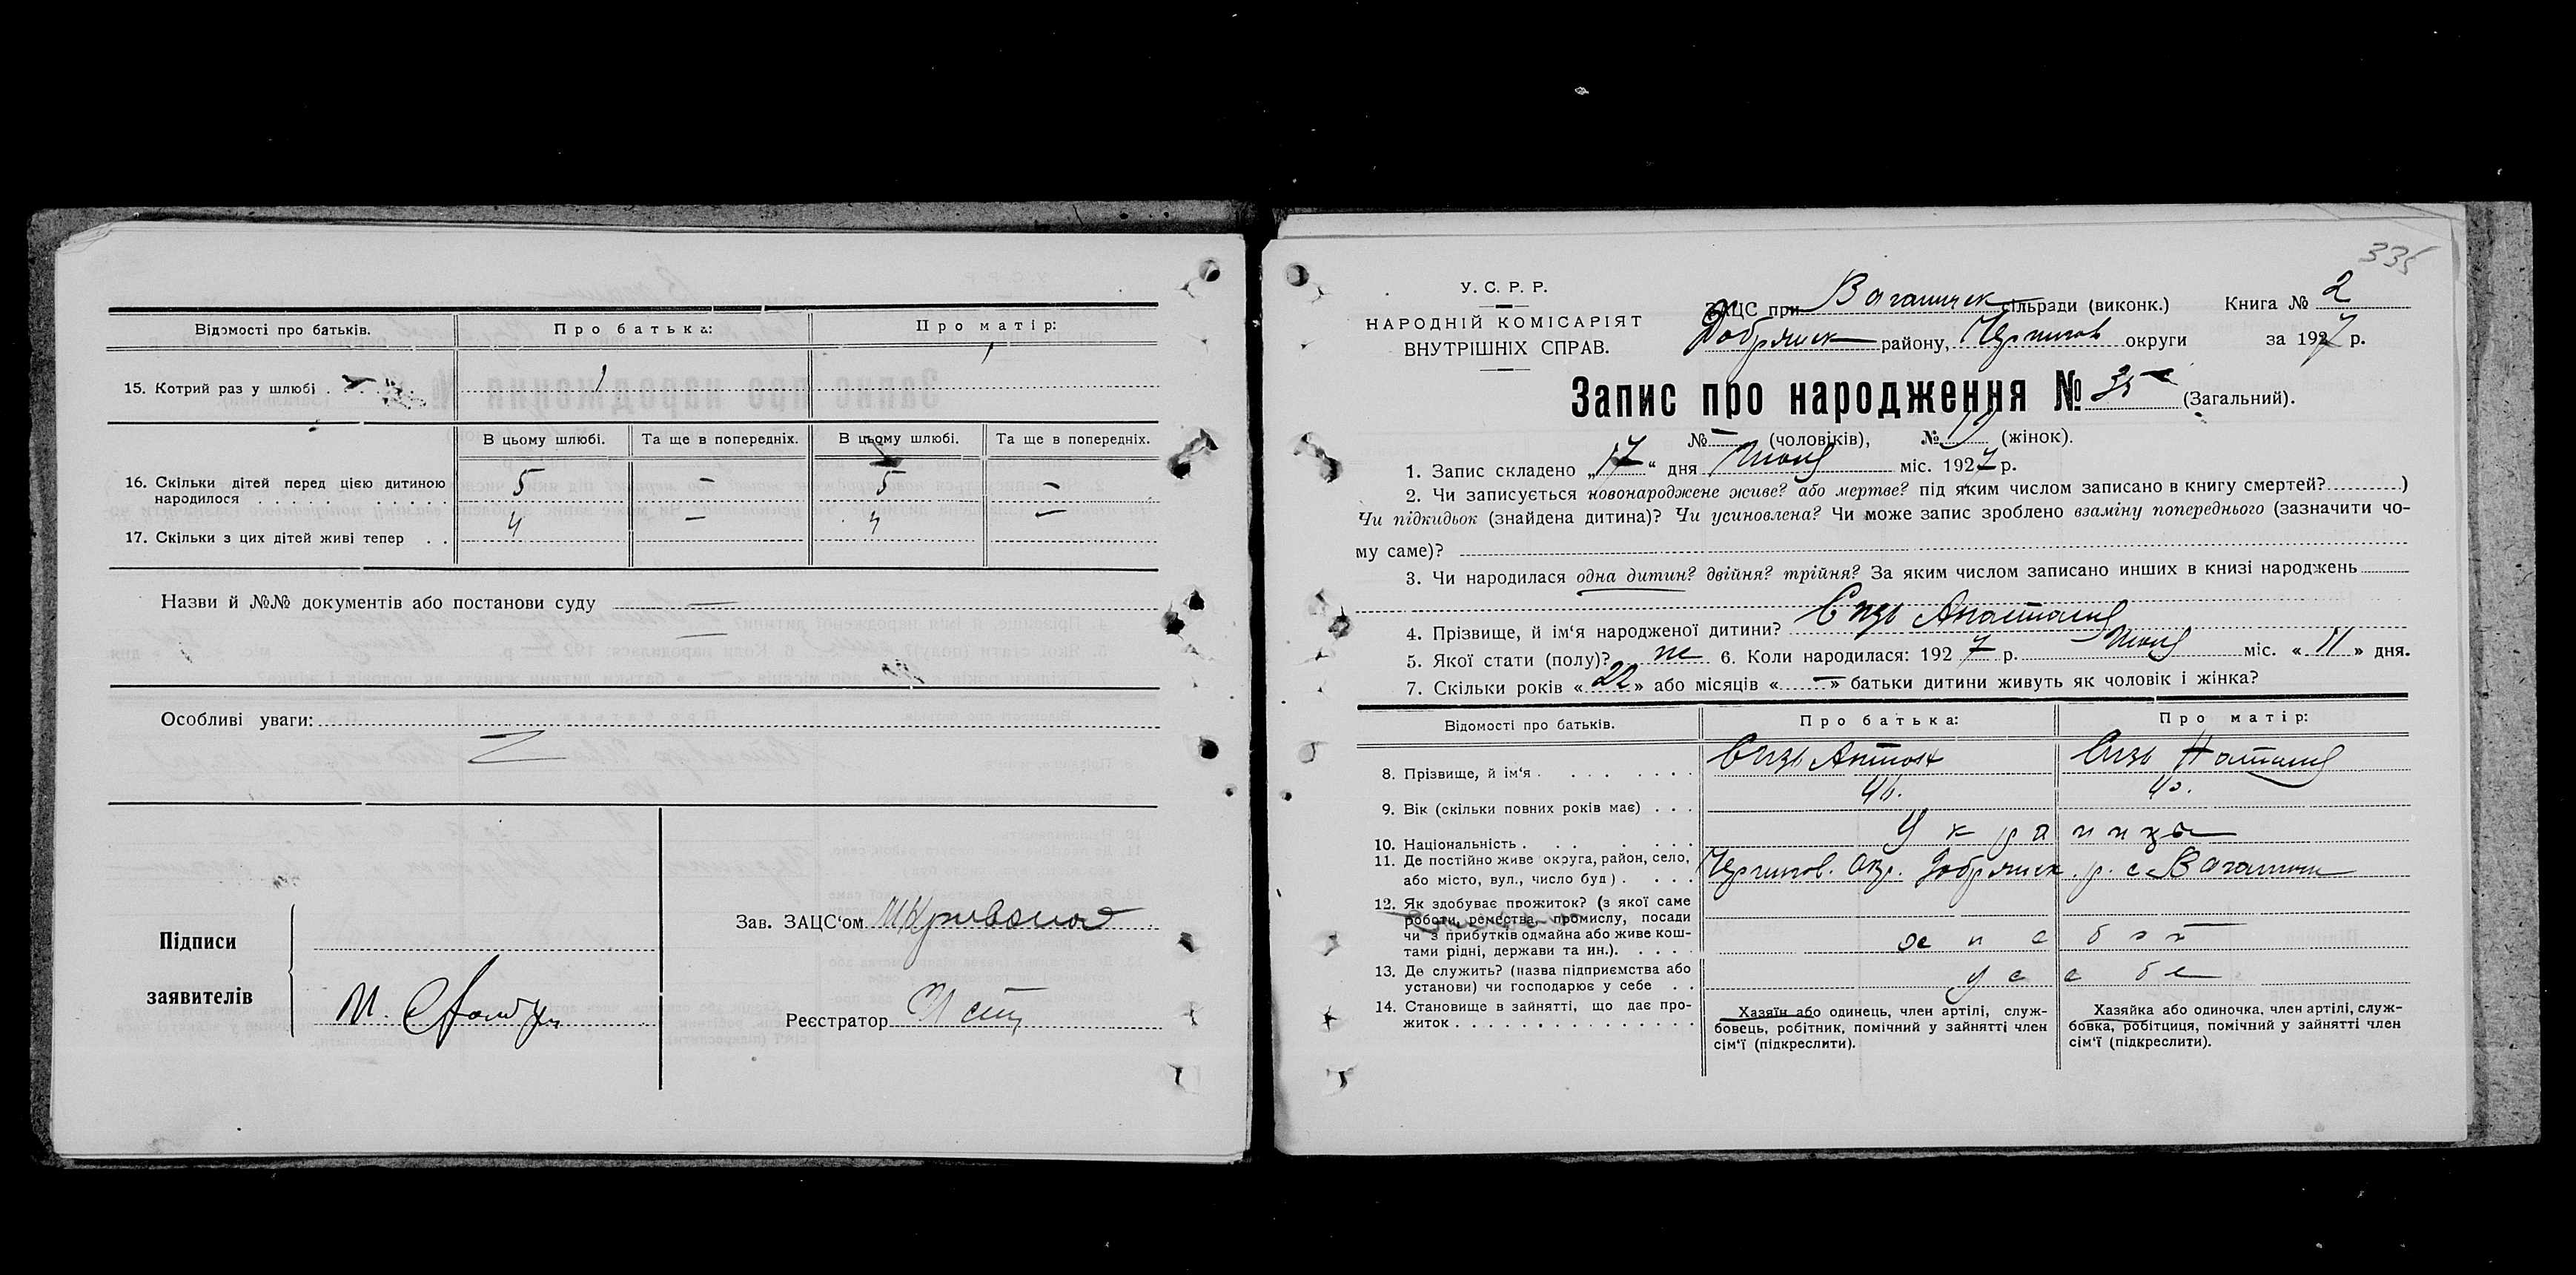 Відомості про батьків.
Про батька:
Про матір:
15. Котрий раз у шлюбі . 1 1
В цьому шлюбі. Та ще в попередніх. В цьому шлюбі. Та ще в попередніх.
16. Скільки дітей перед цією дитиною
народилося . . . 5 — 5 —
17. Скільки з цих дітей живі тепер . . 4 — 4 —
Назви й №№ документів або постанови суду —
—
Особливі уваги:
Підписи
заявителів
М.
Зав. ЗАЦС'ом
Реєстратор
335
У. С. Р. Р.
НАРОДНІЙ КОМІСАРІЯТ
ВНУТРІШНІХ СПРАВ.
ЗАЦС при Ваганичск сільради (виконк.) Книга № 2
Добрянск району, Чернигов округи за 1927 р.
Запис про народження № 35 (Загальний).
№ — (чоловіків), № 17 (жінок).
1. Запис складено „17“ дня Июля міс. 1927 р.
2. Чи записується новонароджене живе? або мертве? під яким числом записано в книгу смертей? )
Чи підкидьок (знайдена дитина)? Чи усиновлена? Чи може запис зроблено взаміну попереднього (зазначити чо-
му саме)?
3. Чи народилася одна дитин? двійня? трійня? За яким числом записано инших в книзі народжень
4. Прізвище, й ім'я народженої дитини? Сизь Анастасия
5. Якої стати (полу)? ж 6. Коли народилася: 1927 р. Июля міс. « 11 » дня.
7. Скільки років « 22 » або місяців « — » батьки дитини живуть як чоловік і жінка?
Відомості про батьків.
Про батька:
Про матір:
8. Прізвище, й ім'я . Сизь Антон Сизь Наталия
9. Вік (скільки повних років має) . . . 46. 40.
10. Національність . Украинцы
11. Де постійно живе округа, район, село,
або місто, вул., число буд) . Чернигов. Окр. Добрянск. р. с. Ваганичи
12. Як здобуває прожиток? (з якої саме
роботи, ремества, промислу, посади
чи з прибутків одмайна або живе кош-
тами рідні, держави та ин.).
13. Де служить? (назва підприємства або
установи) чи господарює у себе . . у себе
14. Становище в зайнятті, що дає про-
житок
Хазяїн або одинець, член артілі, служ-
бовець, робітник, помічний у зайнятті член
сім'ї (підкреслити).
Хазяйка або одиночка, член артілі, служ-
бовка, робітциця, помічний у зайнятті член
сім'ї (підкреслити).